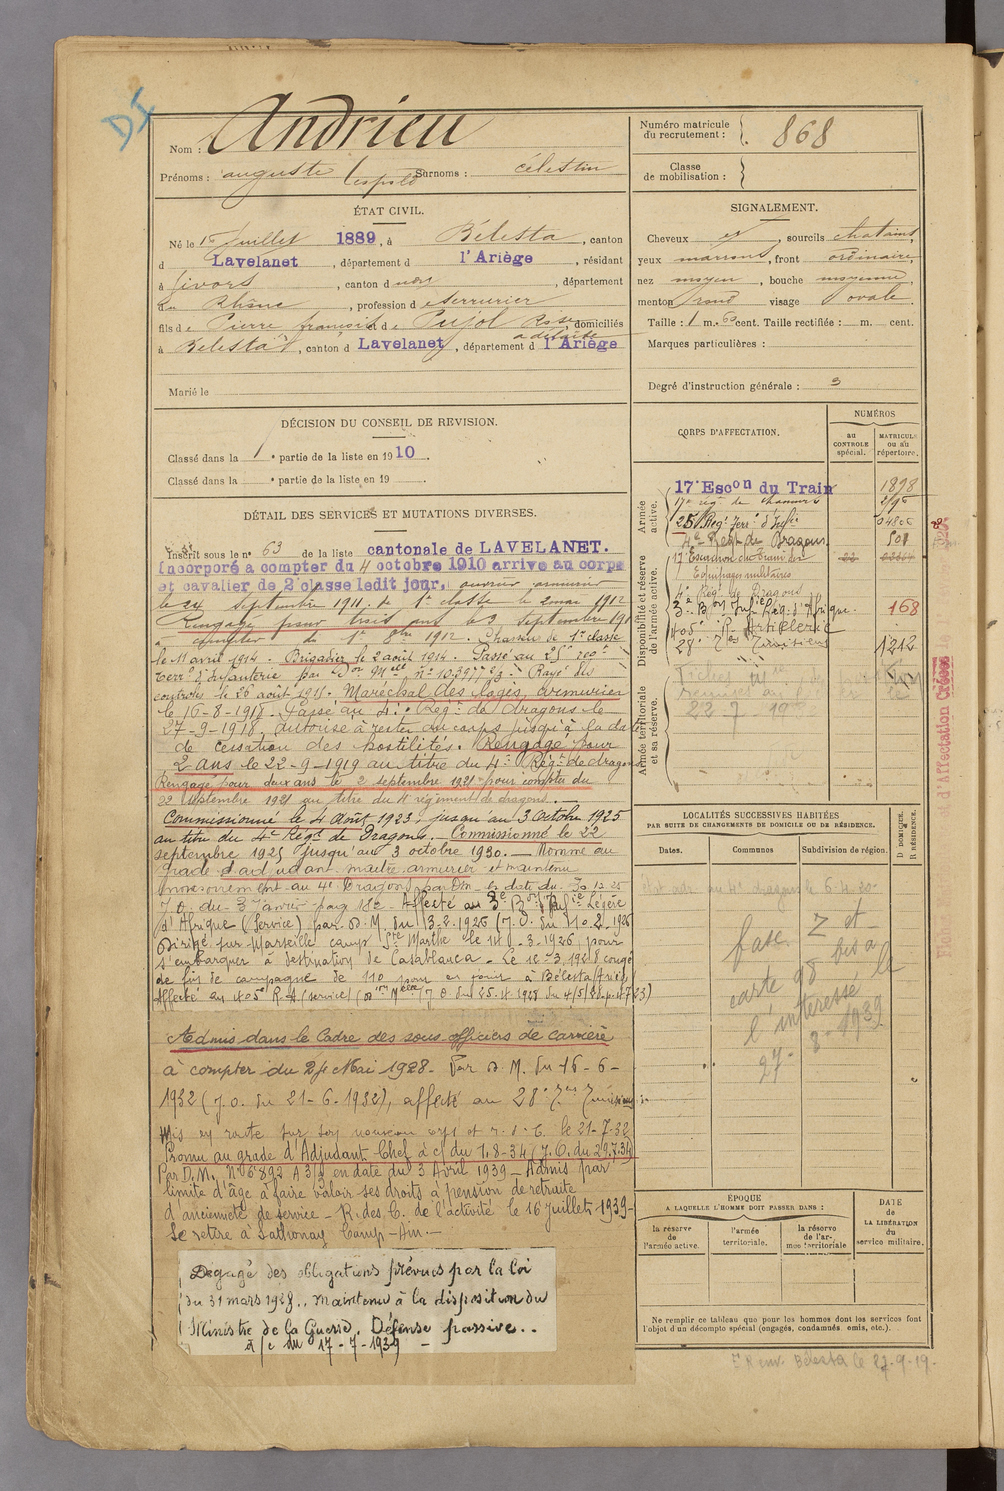 DI
Nom : Andrieu
Prénoms : auguste Léopold Surnoms : célestin
Numéro matricule du recrutement : 868
Classe de mobilisation :
ÉTAT CIVIL.
Né le 16 Juillet 1889, à Bélesta, canton
d Lavelanet, département d l'Ariège, résidant
à Givors, canton d udit, département
du Rhône, profession de serrurier
fils de Pierre françois et de Pujol Rose, domiciliés
à Bélesta, canton d Lavelanet, département d l'Ariège
Marié le
SIGNALEMENT.
Cheveux et, sourcils chatains,
yeux marrons, front ordinaire,
nez moyen, bouche moyenne,
menton rond visage ovale.
Taille : 1 m. 60 cent. Taille rectifiée : m. cent.
Marques particulières :
Degré d'instruction générale : 3
DÉCISION DU CONSEIL DE REVISION.
Classé dans la 1e partie de la liste en 1910.
Classé dans la e partie de la liste en 19 .
DÉTAIL DES SERVICES ET MUTATIONS DIVERSES.
Inscrit sous le n° 63 de la liste cantonale de LAVELANET.
Incorporé a compter du 4 octobre 1910 arrivé au corps
et cavalier de 2e classe ledit jour. ouvrier armurier
le 24 septembre 1911. de 1e classe le 2 mai 1912
Rengagé pour trois ans le 3 septembre 191
à compter du 1er 8bre 1912. Chasseur de 1e classe
le 11 avril 1914. Brigadier le 2 août 1914. Passé au 25e regt
terr. d'Infanterie par Don Melle n° 10.397 2/3. Rayé des
controles le 26 août 1915. Maréchal des logis, armurier
le 16-8-1918. Passé au 4e Régt de dragons le
27-9-1918, autorisé à rester au corps jusqu'à la date
de cessation des hostilités. Rengagé pour
2 ans le 22-9-1919 au titre du 4e Régt de dragons
Rengagé pour deux ans le 2 septembre 1921 pour compter du
22 septembre 1921 au titre du 4e régiment de dragons.
Commissionné le 4 Août 1923, jusqu'au 3 Octobre 1925
au titre du 4e Régt de Dragons. Commissionné le 22
septembre 1925 jusqu'au 3 octobre 1930. Nommé au
grade d'adjudant maitre armurier et maintenu
provisoirement au 4e Dragons par Don en date du 30.12.25
J.O. du 3 janvier page 182 Affecté au 3e Bon d'Infie Légère
d'Afrique (Service) par D.M. du 13.2.1926 (J.O. du 10.2.1926
Dirigé sur Marseille camp Ste Marthe le 14-3-1926, pour
s'embarquer à destination de Casablanca.
de fin de campagne de 110 jours en jouir à Bélesta
Affecté au 405e R.A (service)
Admis dans le Cadre des sous officiers de carrière
à compter du Mai 1928. Par D.M. du 16-6-
1932 (J.O. du 21-6-1932), affecté au 28e
Mis en route sur son nouveau corps et r.d.C. le 21-7-32
Promu au grade d'Adjudant Chef à c/ du 1.8-34 (J.O. du 29.7.34)
Par D.M. N° 6892 A 3/9 en date du 3 Avril 1939 - Admis par
limite d'âge à faire valoir ses droits à pension de retraite
d'ancienneté de service - R. des C. de l'activité le 16 juillet 1939-
Se retire à Sathonay Camp - Ain.-
Degagé des obligations prévues par la loi
du 31 mars 1928.. Maintenu à la disposition du
Ministre de la Guerre. Défense passive..
à/c du 17-7-1939 -
CORPS D'AFFECTATION.
NUMÉROS
au CONTROLE spécial.
MATRICULE ou au répertoire.
Armée active.
17e Escon du Train 1898
17e rég. de chasseurs
25e Régt Terr. d'Infie
4e Régt de Dragons. 501
Disponibilité et réserve de l'armée active.
17e Escadron du Train des
Équipages militaires
4e Rég. de Dragons
3e Bon Infie Lég. d'Afrique. 168
405e R. Artillerie
28e 1212
Armée territoriale et sa réserve.
22-7-19
LOCALITÉS SUCCESSIVES HABITÉES
PAR SUITE DE CHANGEMENTS DE DOMICILE OU DE RÉSIDENCE.
Dates.
Communes
Subdivision de région.
D DOMICILE.
R RÉSIDENCE.
au 4e dragons le 6-4-20-
fasc. Z et
carte 98
l'intéressé le
27-8-1939
Fiche d'Affectation Créées
ÉPOQUE
A LAQUELLE L'HOMME DOIT PASSER DANS :
la réserve de l'armée active.
l'armée territoriale.
la réserve de l'armée territoriale
DATE DE LA LIBÉRATION du service militaire.
Ne remplir ce tableau que pour les hommes dont les services font
l'objet d'un décompte spécial (engagés, condamnés, omis, etc.).
env. Bélesta le 27-9-19-